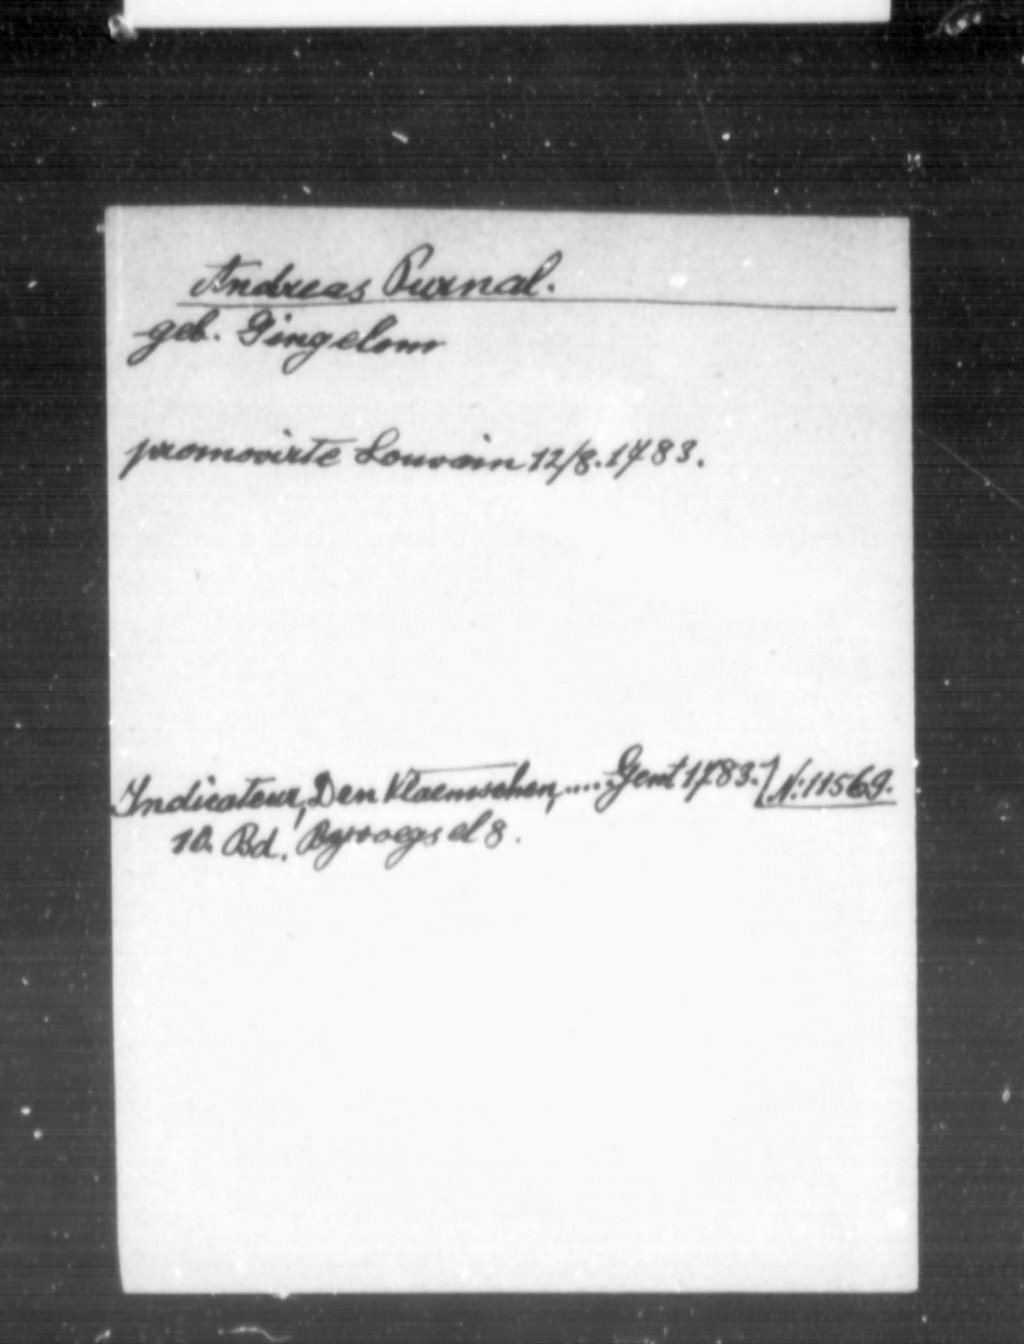 Andreas Purnal.
geb. Gingelom
promovirte Louvain 12/8. 1783.
Indicateur, Den Vlaemschen, .... Gent 1783. / N: 11569.
10. Bd. Byvoegsel 8.